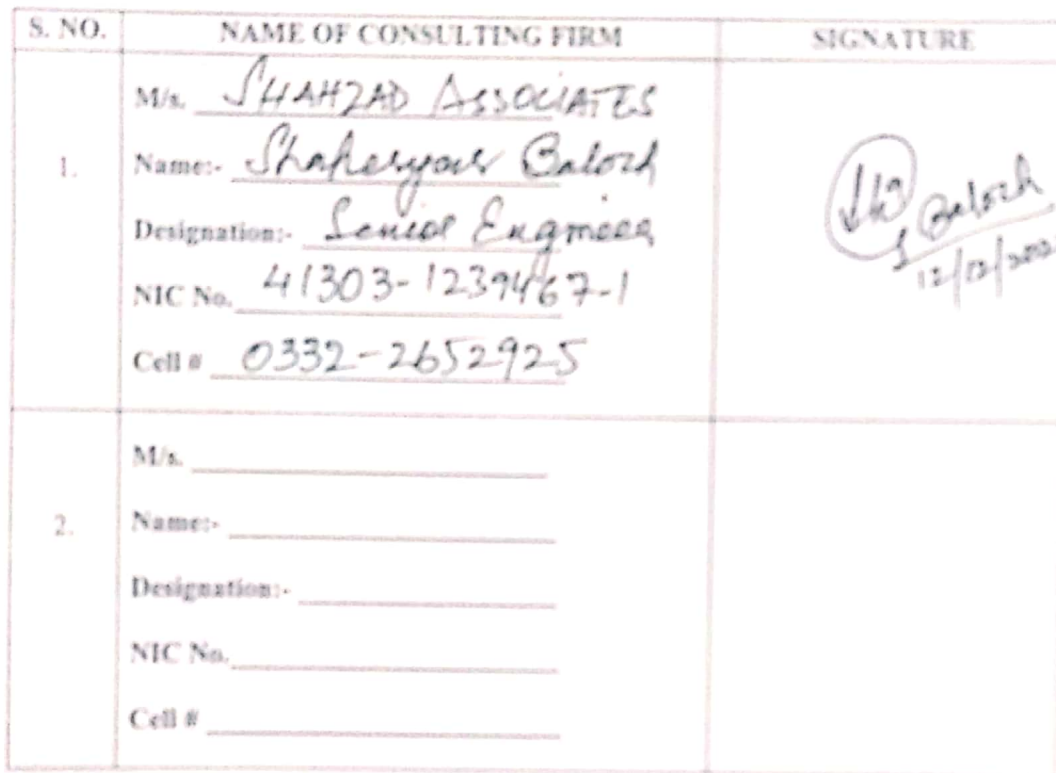 S. NO. NAME OF CONSULTING FIRM SIGNATURE
1.
M/s. SHAHZAD ASSOCIATES
Name:- Shaheryar Baloch
Designation:- Senior Engineer
NIC No. 41303-1239467-1
Cell # 0332-2652925
Baloch
12/12/202
2.
M/s.
Name:-
Designation:-
NIC No.
Cell #